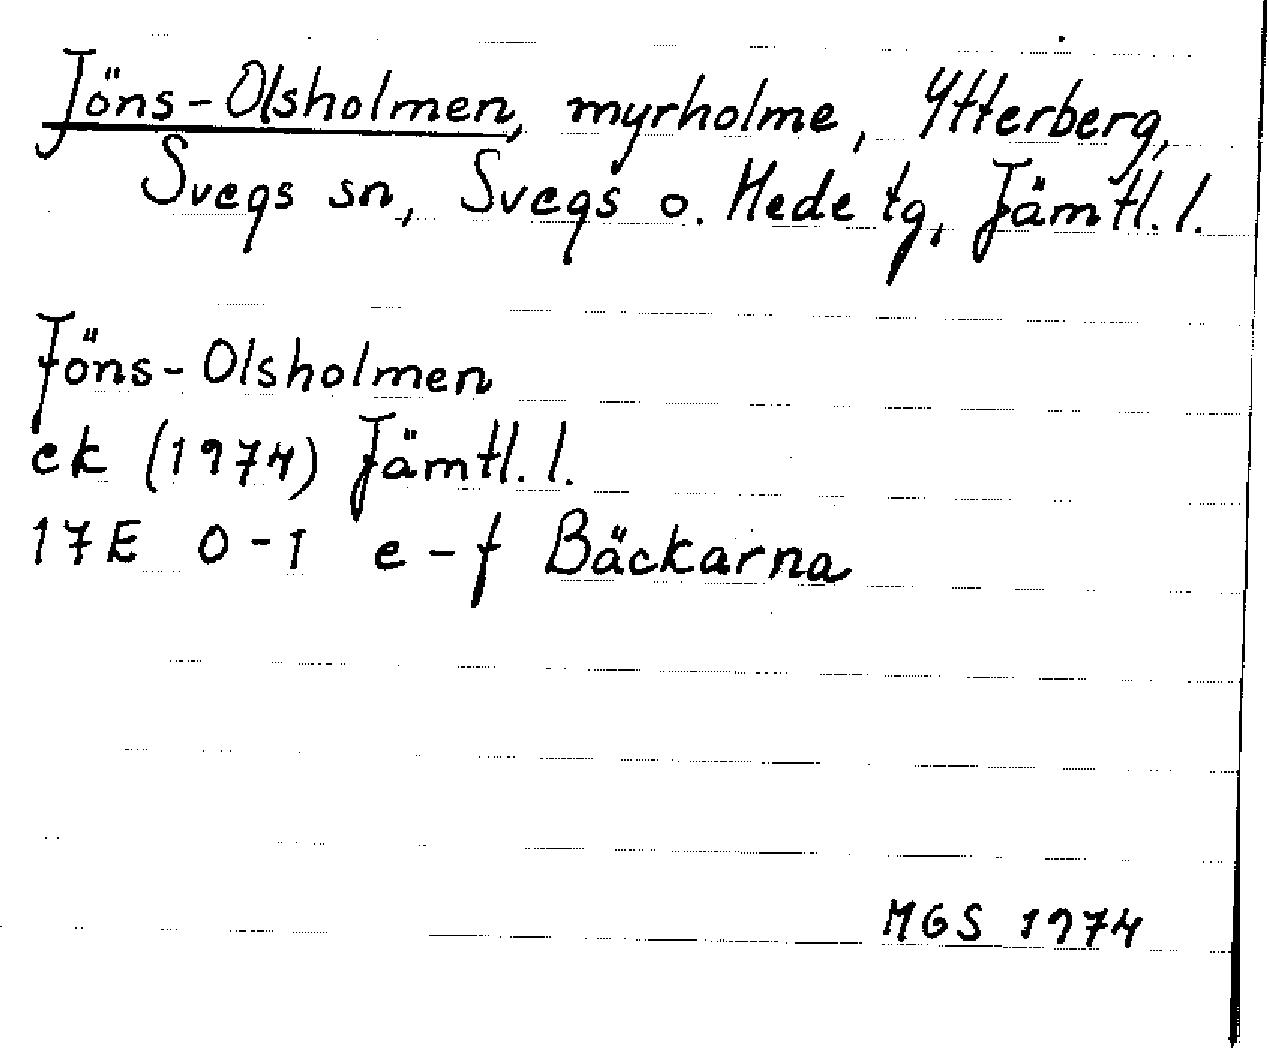 Jöns-Olsholmen, myrholme, Ytterberg,
Svegs sn, Svegs o. Hede tg, Jämtl. l.
Jöns-Olsholmen
ek (1974) Jämtl. l.
17E 0-1 e-f Bäckarna
MGS 1974